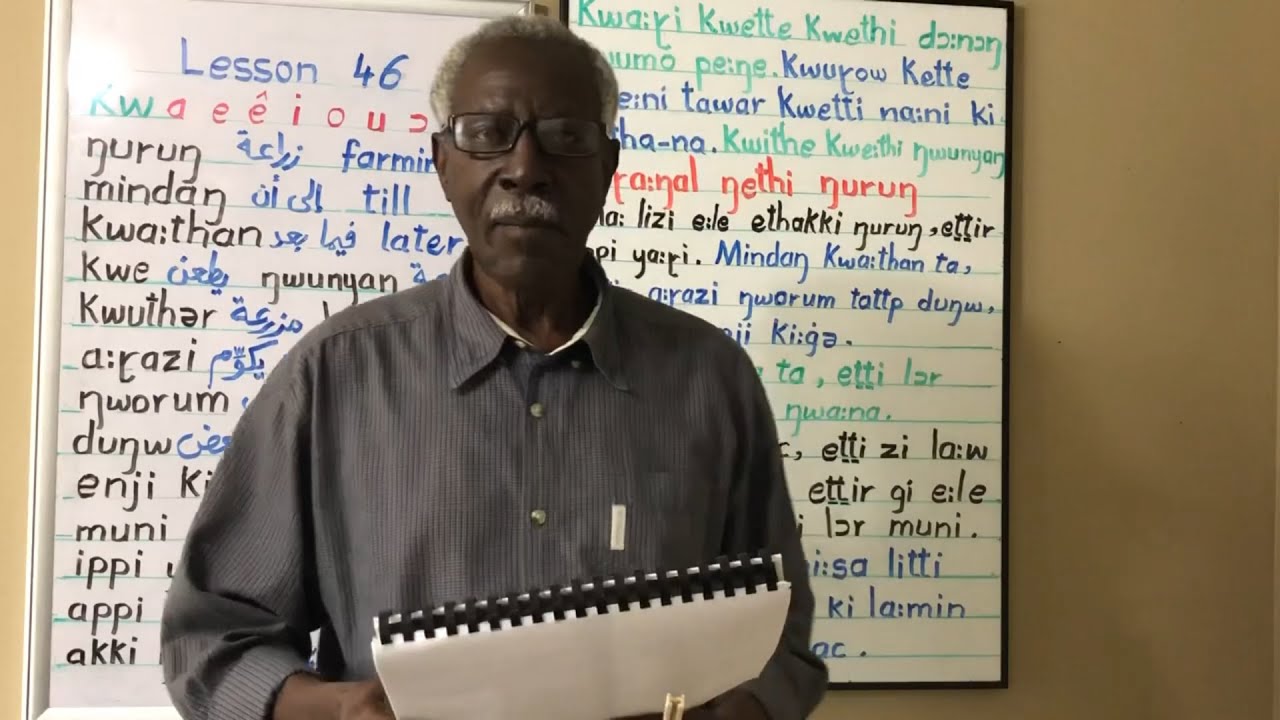 Lesson 46
Kw a e ê i o u ɔ
ŋuruŋ زراعة farmin
mindaŋ الى أن till
Kwa:than فيما بعد later
Kwe يطعن ŋwunyan
Kwuthər مزرعة
a:ɽazi يكوّم
ŋworum
duŋw
enji Ki
muni
ippi
appi
akki
Kwa:ɽi Kwette Kwethi dɔ:nɔŋ
umo pe:ŋe. Kwuɽow Kette
e:ni tawar Kwetti na:ni ki
tha-na. Kwithe Kwe:thi ŋwunyaŋ
ɽa:ŋal ŋethi ŋuruŋ
la: lizi e:le ethakki ŋuruŋ, eṯṯir
pi ya:ɽi. Mindaŋ Kwa:than ta,
a:ɽazi ŋworum tattp duŋw,
ji Ki:ġə.
ta, eṯṯi lər
ŋwa:na.
c, eṯṯi zi la:w
eṯṯir gi e:le
i lɔr muni.
i:sa litti
ki la:min
ac.